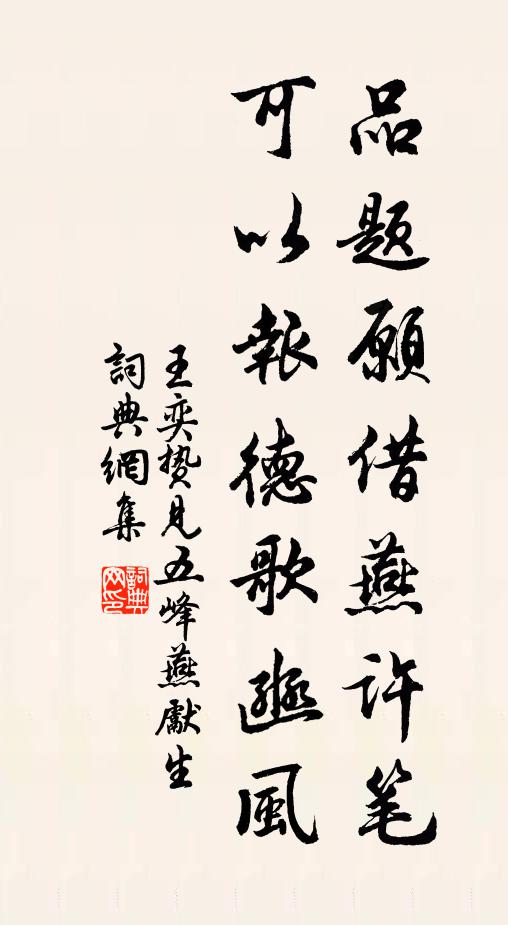 品题願借燕许笔
可以報德歌豳風
王奕贄見五峰燕獻生
詞典網集
詞典网印